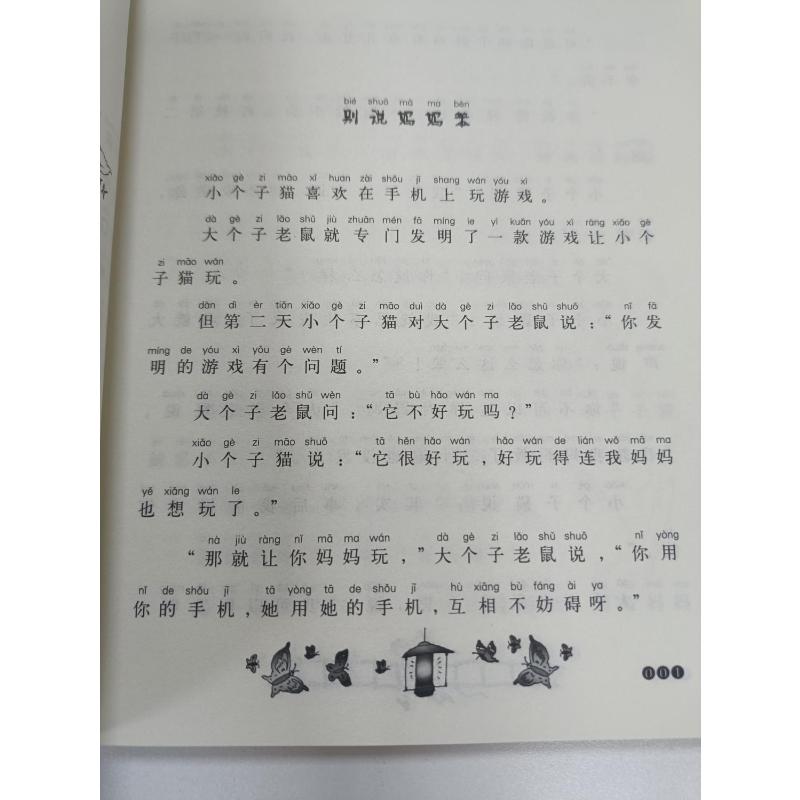 bié shuō mā ma bèn
别说妈妈笨
xiǎo gè zi māo xǐ huan zài shǒu jī shang wán yóu xì
小个子猫喜欢在手机上玩游戏。
dà gè zi lǎo shǔ jiù zhuān mén fā míng le yì kuǎn yóu xì ràng xiǎo gè
大个子老鼠就专门发明了一款游戏让小个
zi māo wán
子猫玩。
dàn dì èr tiān xiǎo gè zi māo duì dà gè zi lǎo shǔ shuō nǐ fā
但第二天小个子猫对大个子老鼠说：“你发
míng de yóu xì yǒu gè wèn tí
明的游戏有个问题。”
dà gè zi lǎo shǔ wèn tā bù hǎo wán ma
大个子老鼠问：“它不好玩吗？”
xiǎo gè zi māo shuō tā hěn hǎo wán hǎo wán de lián wǒ mā ma
小个子猫说：“它很好玩，好玩得连我妈妈
yě xiǎng wán le
也想玩了。”
nà jiù ràng nǐ mā ma wán dà gè zi lǎo shǔ shuō nǐ yòng
“那就让你妈妈玩，”大个子老鼠说，“你用
nǐ de shǒu jī tā yòng tā de shǒu jī hù xiāng bù fáng ài ya
你的手机，她用她的手机，互相不妨碍呀。”
001